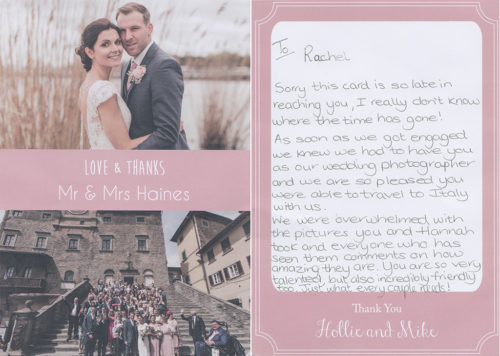 LOVE & THANKS
Mr & Mrs Haines
To Rachel
Sorry this card is so late in
reaching you, I really don't know
where the time has gone!
As soon as we got engaged
we knew we had to have you
as our wedding photographer
and we are so pleased you
were able to travel to Italy
with us.
We were overwhelmed with
the pictures you and Hannah
took and everyone who has
seen them comments on how
amazing they are. You are so very
talented, but also incredibly friendly
too. Just what every couple needs!
Thank You
Hollie and Mike